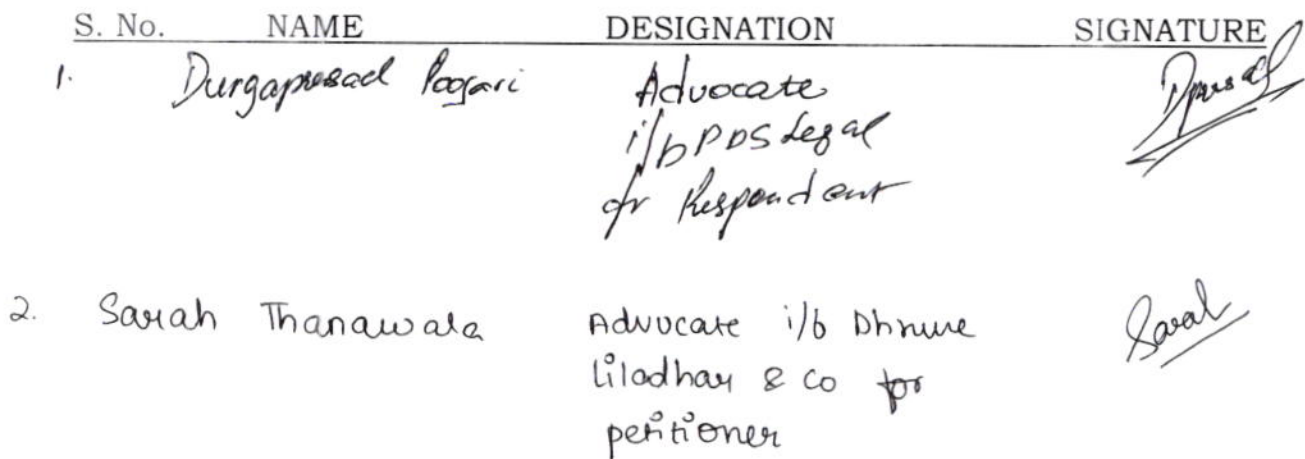 S. No. NAME DESIGNATION SIGNATURE
1. Durgaprasad Poojari Advocate
i/b PDS Legal
for Respondent
2. Sarah Thanawala Advocate i/b Dhruve
Liladhar & Co for
petitioner
Sarah